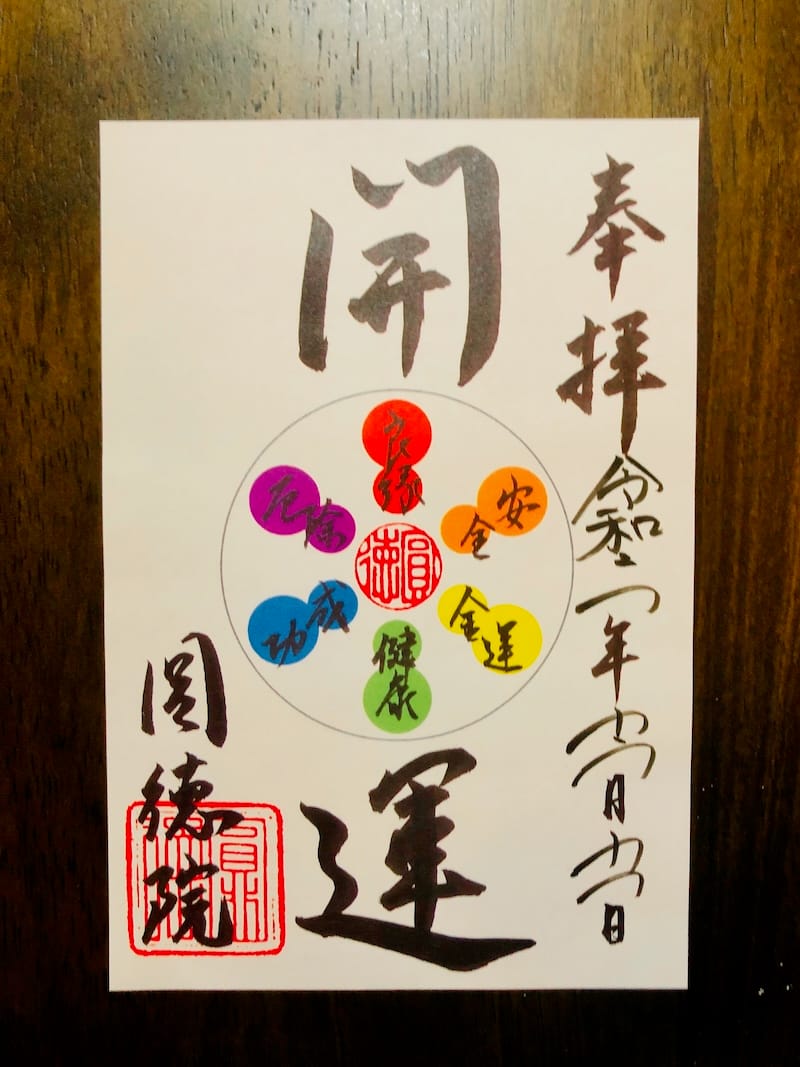 奉拝
令和二年月日
開運
良縁
安全
金運
健康
成功
厄除
圓徳
圓徳院